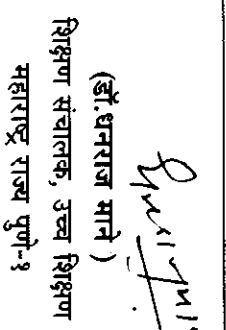 (डॉ.धनराज माने )
शिक्षण संचालक, उच्च शिक्षण
महाराष्ट्र राज्य पुणे-१